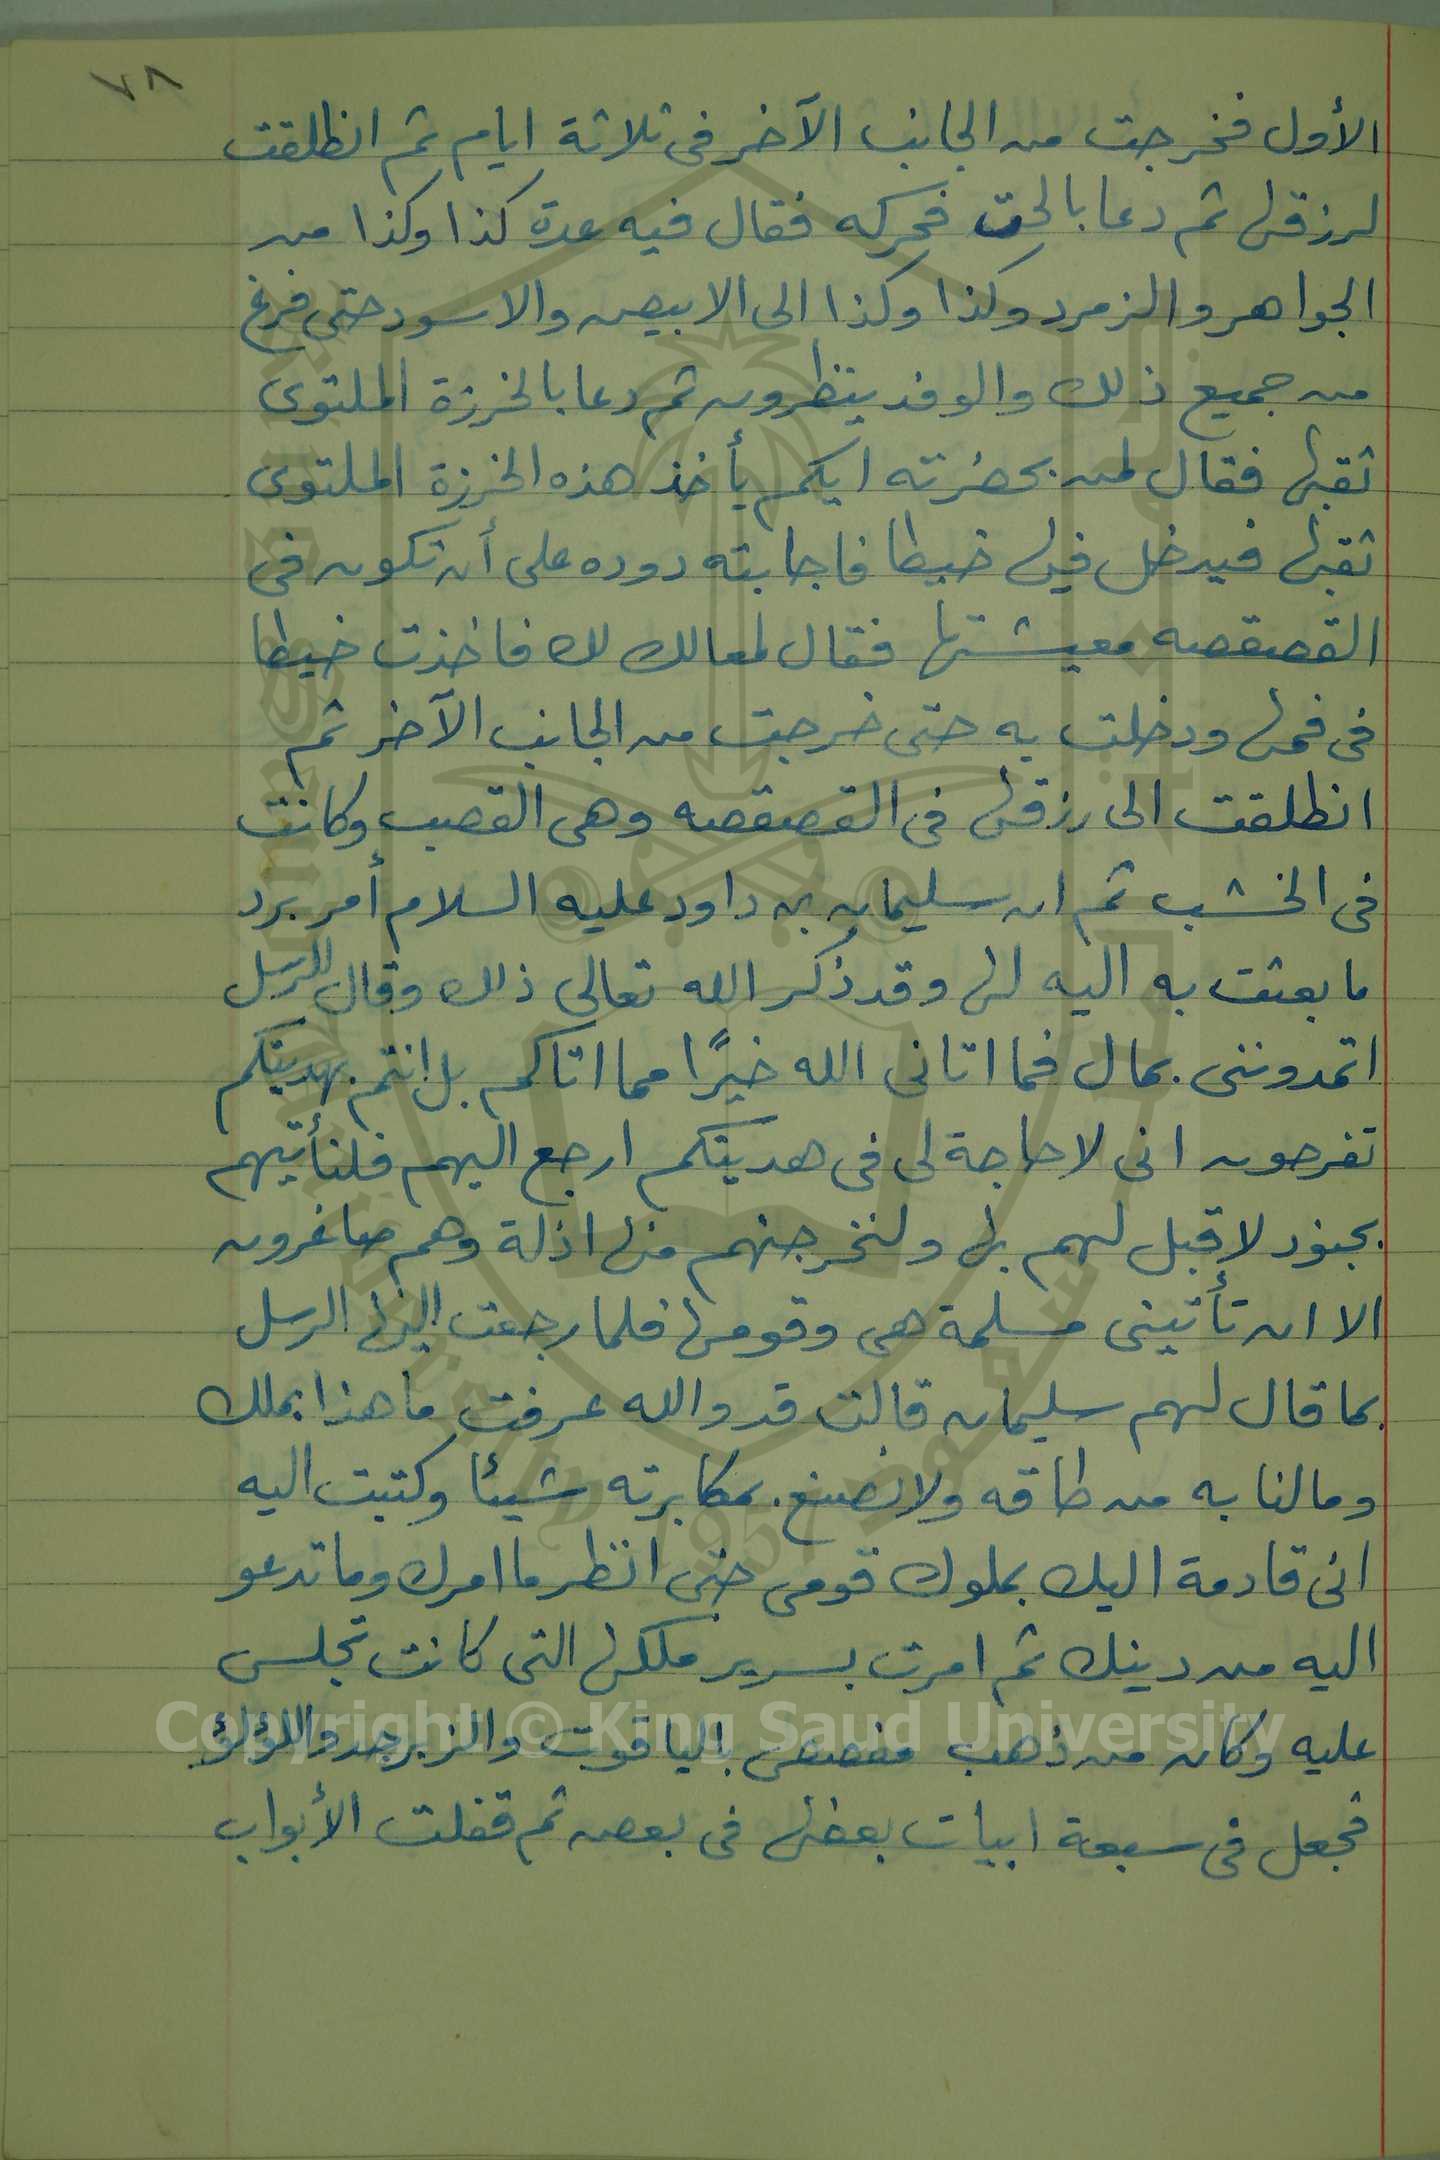 ٧٨
الأول فخرجت من الجانب الآخر فى ثلاثة ايام ثم انطلقت
لرزقها ثم دعا بالحق فحركه فقال فيه عدة كذا وكذا من
الجواهر والزمرد وكذا وكذا الى الابيض والاسود حتى فرغ
من جميع ذلك والوفد ينظرون ثم دعا بالخرزة الملتوى
ثقبها فقال لمن بحضرته ايكم يأخذ هذه الخرزة الملتوى
ثقبها فيدخل فيها خيطا فاجابته دوده على أن تكون فى
القصقصه معيشتها فقال لها ذلك لك فاخذت خيطا
فى فمها ودخلت به حتى خرجت من الجانب الآخر ثم
انطلقت الى رزقها فى القصقصه وهى القصب وكانت
فى الخشب ثم ان سليمان بن داود عليه السلام أمر برد
ما بعثت به اليه لها وقد ذكر الله تعالى ذلك وقال للرسل
اتمدوننى بمال فما اتانى الله خيرًا مما اتاكم بل انتم بهديتكم
تفرحون انى لا حاجة لى فى هديتكم ارجع اليهم فلنأتيهم
بجنود لا قبل لهم بها ولنخرجنهم منها اذلة وهم صاغرون
الا ان تأتينى مسلمة هى وقومها فلما رجعت اليها الرسل
بما قال لهم سليمان قالت قد والله عرفت ما هذا بملك
وما لنا به من طاقه ولا نصنع بمكابرته شيئا وكتبت اليه
انى قادمة اليك بملوك قومى حتى انظر ما امرك وما تدعو
اليه من دينك ثم امرت بسرير ملكها التى كانت تجلس
عليه وكان من ذهب مفصص بالياقوت والزبرجد واللؤلؤ
فجعل فى سبعة ابيات بعضها فى بعض ثم قفلت الأبواب
Copyright © King Saud University
1957